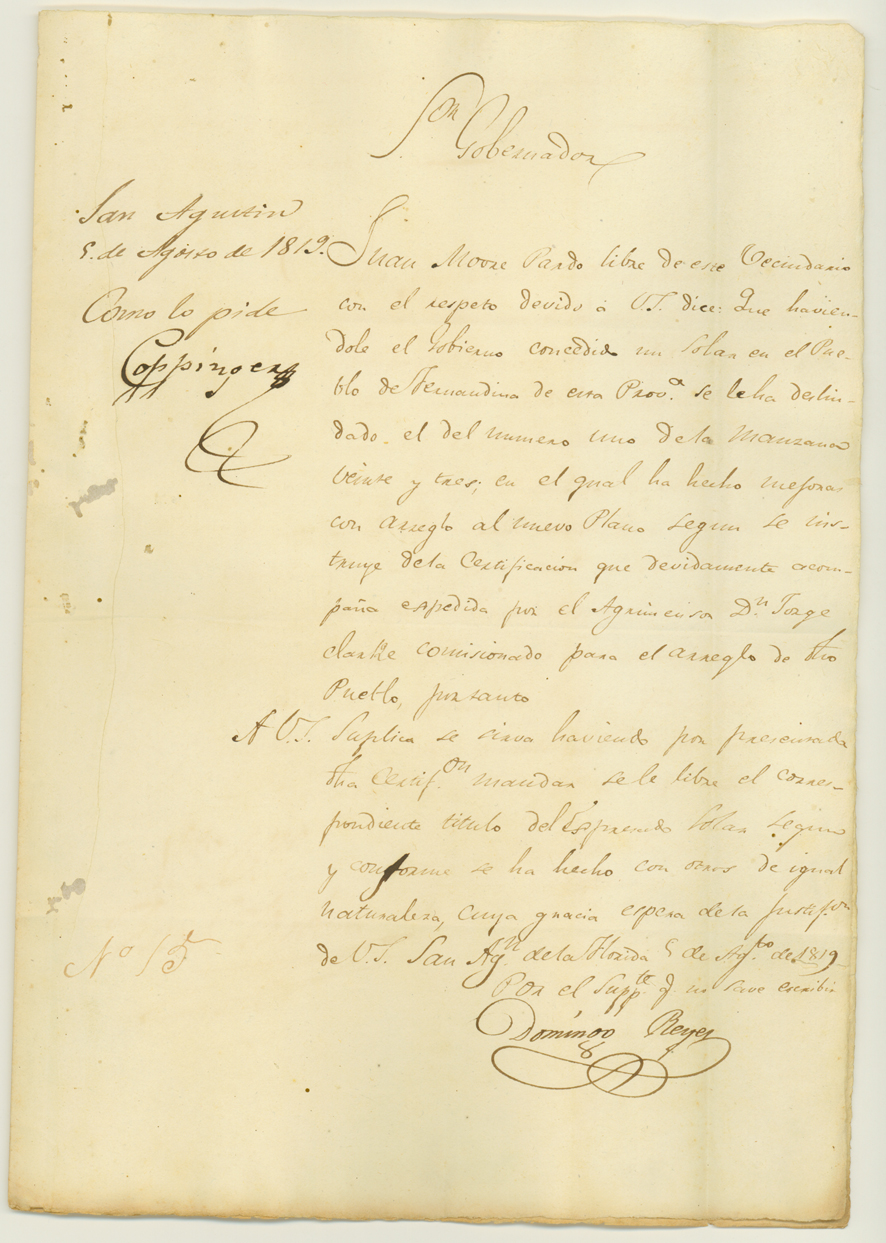 S.or Gobernador
San Agustin
5. de Agosto de 1819.
Como lo pide
Coppinger
Juan Moore Pardo libre de este Vecindario
con el respeto devido á V.S. dice: Que havien-
dole el Gobierno concedido un Solar en el Pue-
blo de Fernandina de esta Prov.a se le ha deslin-
dado el del numero uno de la Manzana
veinte y tres; en el qual ha hecho mejoras
con arreglo al nuevo Plano segun se ins-
truye de la Certificacion que devidamente acom-
paña espedida por el Agrimensor D.n Jorge
Clarke comisionado para el arreglo de dho
Pueblo, por tanto
A V.S. Suplica se sirva haviendo por presentada
dha Certif.on mandar se le libre el corres-
pondiente titulo del Espresado Solar segun
y conforme se ha hecho con otros de igual
naturaleza, cuya gracia espera de la Justif.on
de V.S. San Ag.n de la Florida 5 de Ag.to de 1819
Por el Supp.te q. no save escribir
Domingo Reyes
No 15